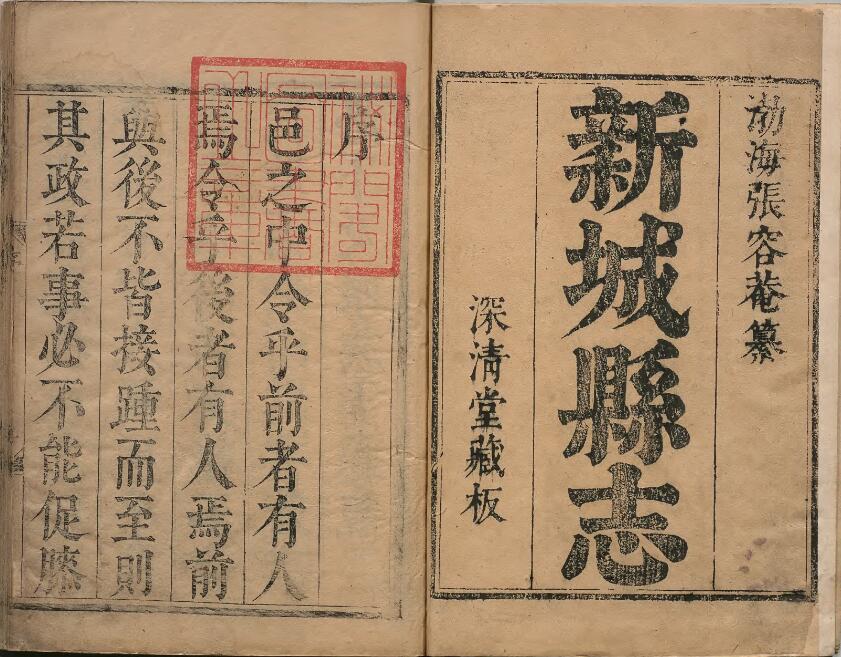 渤海張容菴纂
新城縣志
深淸堂藏板
序
一邑之中令乎前者有人
焉令乎後者有人焉前
與後不皆接踵而至則
其政若事必不能促膝